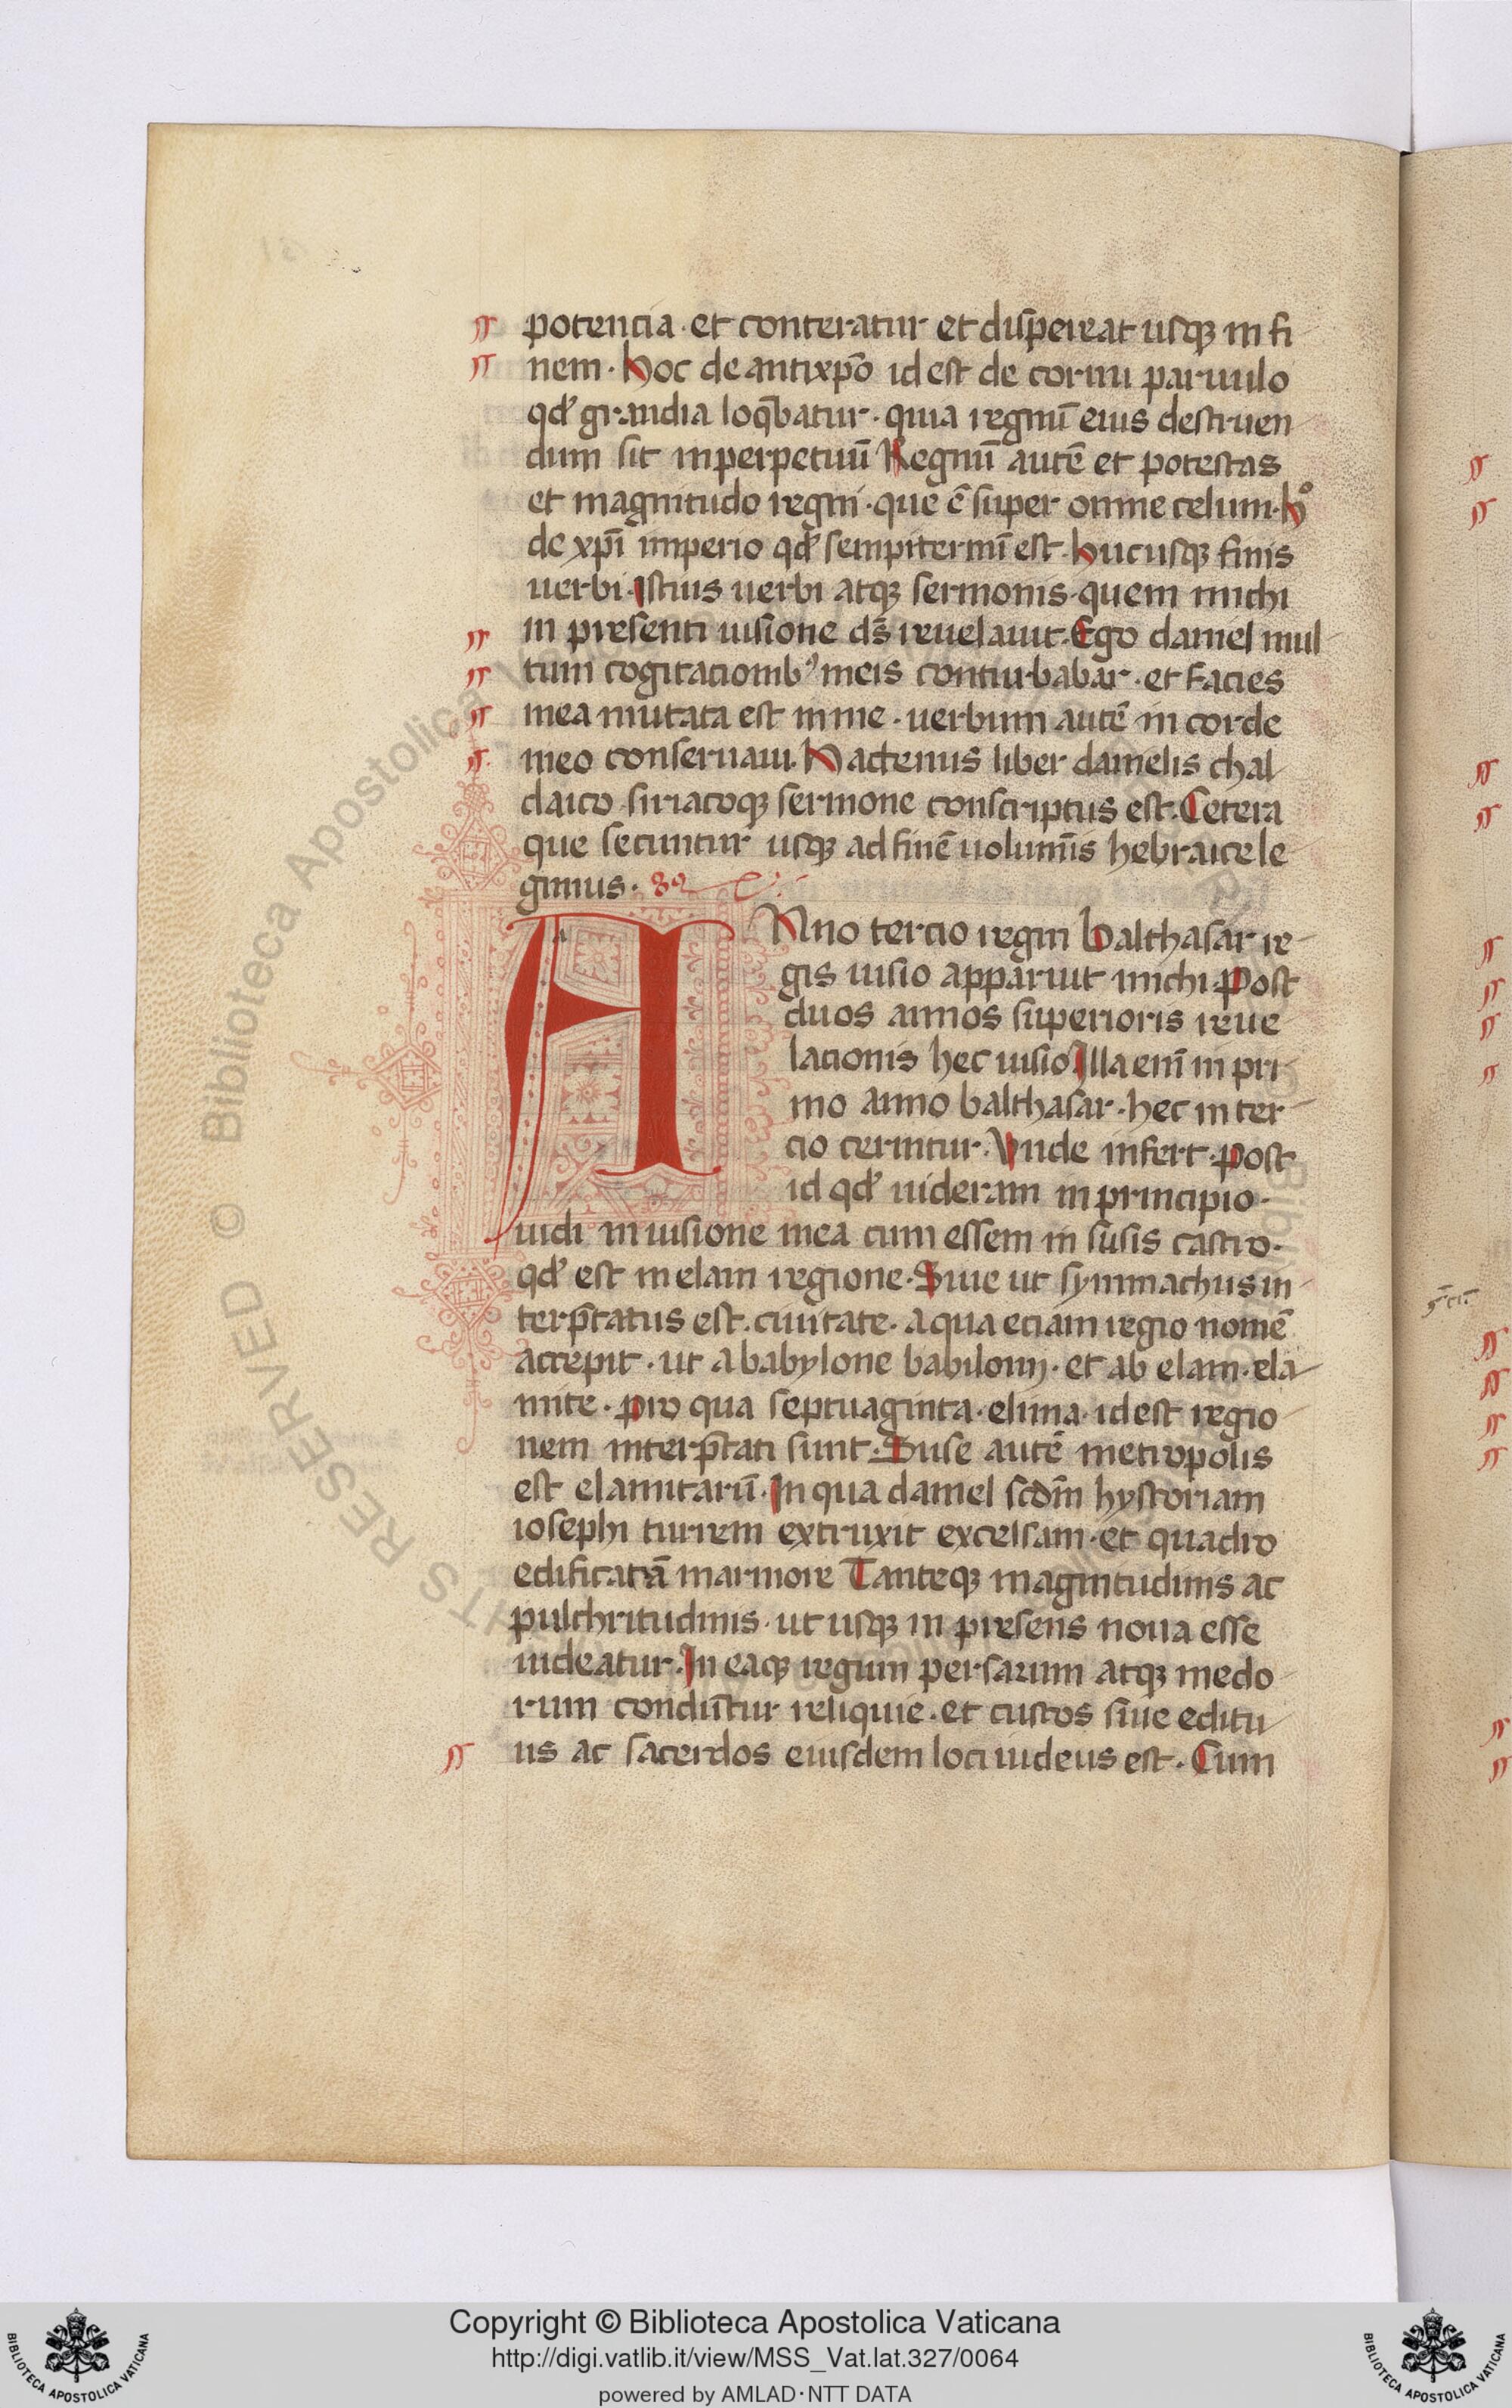 potencia · et conteratur et dispereat usqꝫ in fi
nem · Hoc de antixp̄o id est de cornu paruulo
qđ grandia loq̄batur · quia regnū eius destruen
dum sit inperpetuū Regnū autē et potestas
et magnitudo regni · que ē super omne celum · hͦ
de xp̄i imperio qđ sempiternū est · hucusqꝫ finis
uerbi · Istius uerbi atqꝫ sermonis · quem michi
in presenti uisione ds̄ reuelauit · Ego daniel mul
tum cogitacionibꝰ meis conturbabar · et facies
mea mutata est in me · uerbum autē in corde
meo conseruaui · Hactenus liber danielis chal
daico siriacoqꝫ sermone conscriptus est · Cetera
que secuntur usqꝫ ad finē uolumīs hebraice le
gimus ·
ANno tercio regni balthasar re
gis uisio apparuit michi · post
duos annos superioris reue
lationis hec uisio Illa enī in pri
mo anno balthasar · hec in ter
cio cernitur · Vnde infert · post
id qđ uideram in principio ·
uidi in uisione mea cum essem in susis castro ·
qđ est in elam regione · Siue ut symmachus in
terp̄tatus est · ciuitate · a qua eciam regio nomē
accepit · ut a babylone babilonij · et ab elam · ela
mite · pro qua septuaginta · elima · id est regio
nem interp̄tati sunt · Suse autē metropolis
est elamitarū · In qua daniel scd̄m hystoriam
iosephi turrem extruxit excelsam · et quadro
edificatā marmore Tanteqꝫ magnitudinis ac
pulchritudinis · ut usqꝫ in presens noua esse
uideatur · In eaqꝫ regum persarum atqꝫ medo
rum condūtur reliquie · et custos siue editu
us ac sacerdos eiusdem loci iudeus est · Cum
Copyright © Biblioteca Apostolica Vaticana
http://digi.vatlib.it/view/MSS_Vat.lat.327/0064
powered by AMLAD·NTT DATA
BIBLIOTECA APOSTOLICA VATICANA
BIBLIOTECA APOSTOLICA VATICANA